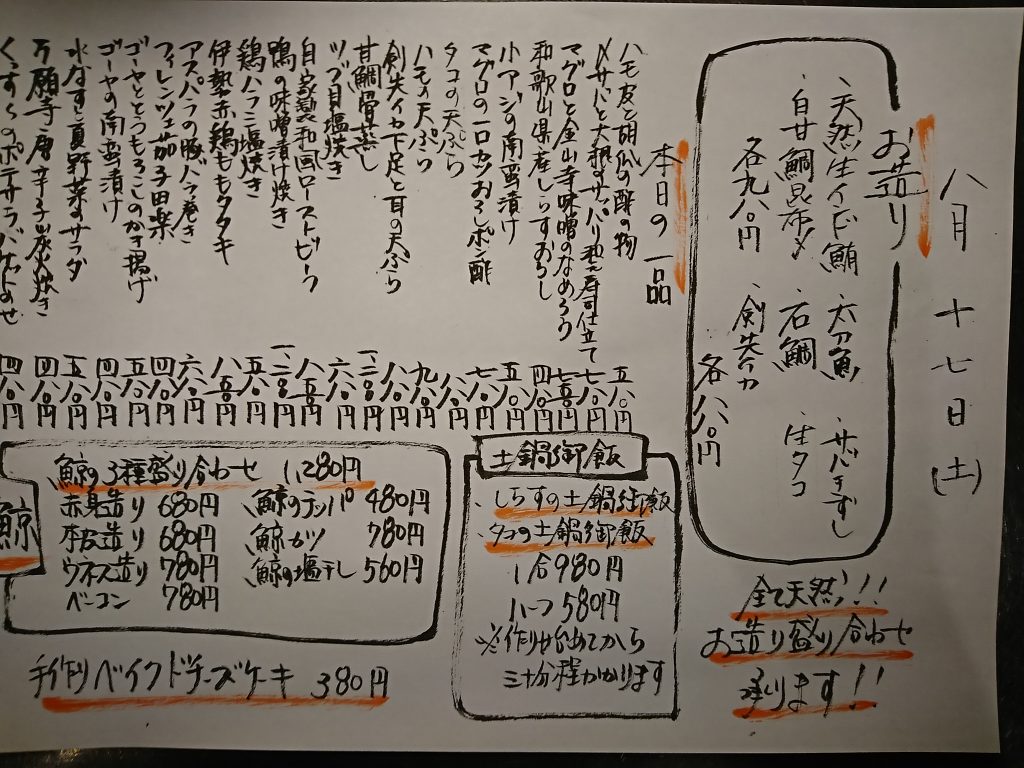 八月十七日(土)
お造り
・天然生インド鮪 ・太刀魚 ・サバきずし
・白甘鯛昆布〆 ・石鯛 生タコ
各九八〇円 ・剣先イカ 各八八〇円
全て天然!!
お造り盛り合わせ
承ります!!
本日の一品
ハモ皮と胡瓜の酢の物 五八〇円
〆サバと大根のサッパリ和え寿司仕立て 七八〇円
マグロと金山寺味噌のなめろう 七五〇円
和歌山県産しらすおろし 四八〇円
小アジの南蛮漬け 五八〇円
マグロの一口カツおろしポン酢 七八〇円
タコの天ぷら 八八〇円
ハモの天ぷら 九八〇円
剣先イカ下足と耳の天ぷら 八八〇円
甘鯛骨蒸し 一、二八〇円
ツブ貝塩焼き 六八〇円
自家製和風ローストビーフ 八五〇円
鴨の味噌漬け焼き 一、二八〇円
鶏ハラミ塩焼き 五八〇円
伊勢赤鶏ももタタキ 八五〇円
アスパラの豚バラ巻き 六八〇円
フィレンツェ茄子田楽 四八〇円
ゴーヤととうもろこしのかき揚げ 五八〇円
ゴーヤの南蛮漬け 四八〇円
水なすと夏野菜のサラダ 五八〇円
万願寺唐辛子炭火焼き 四八〇円
くっすくのポテサラ 四八〇円
土鍋御飯
・しらすの土鍋御飯
・タコの土鍋御飯
1合980円
ハーフ580円
※作り始めてから
三十分程かかります
鯨
鯨の3種盛り合わせ 1,280円
赤身造り 680円 鯨のテッパ 480円
本皮造り 680円 鯨カツ 780円
ウネス造り 780円 鯨の塩干し 560円
ベーコン 780円
手作りベイクドチーズケーキ 380円